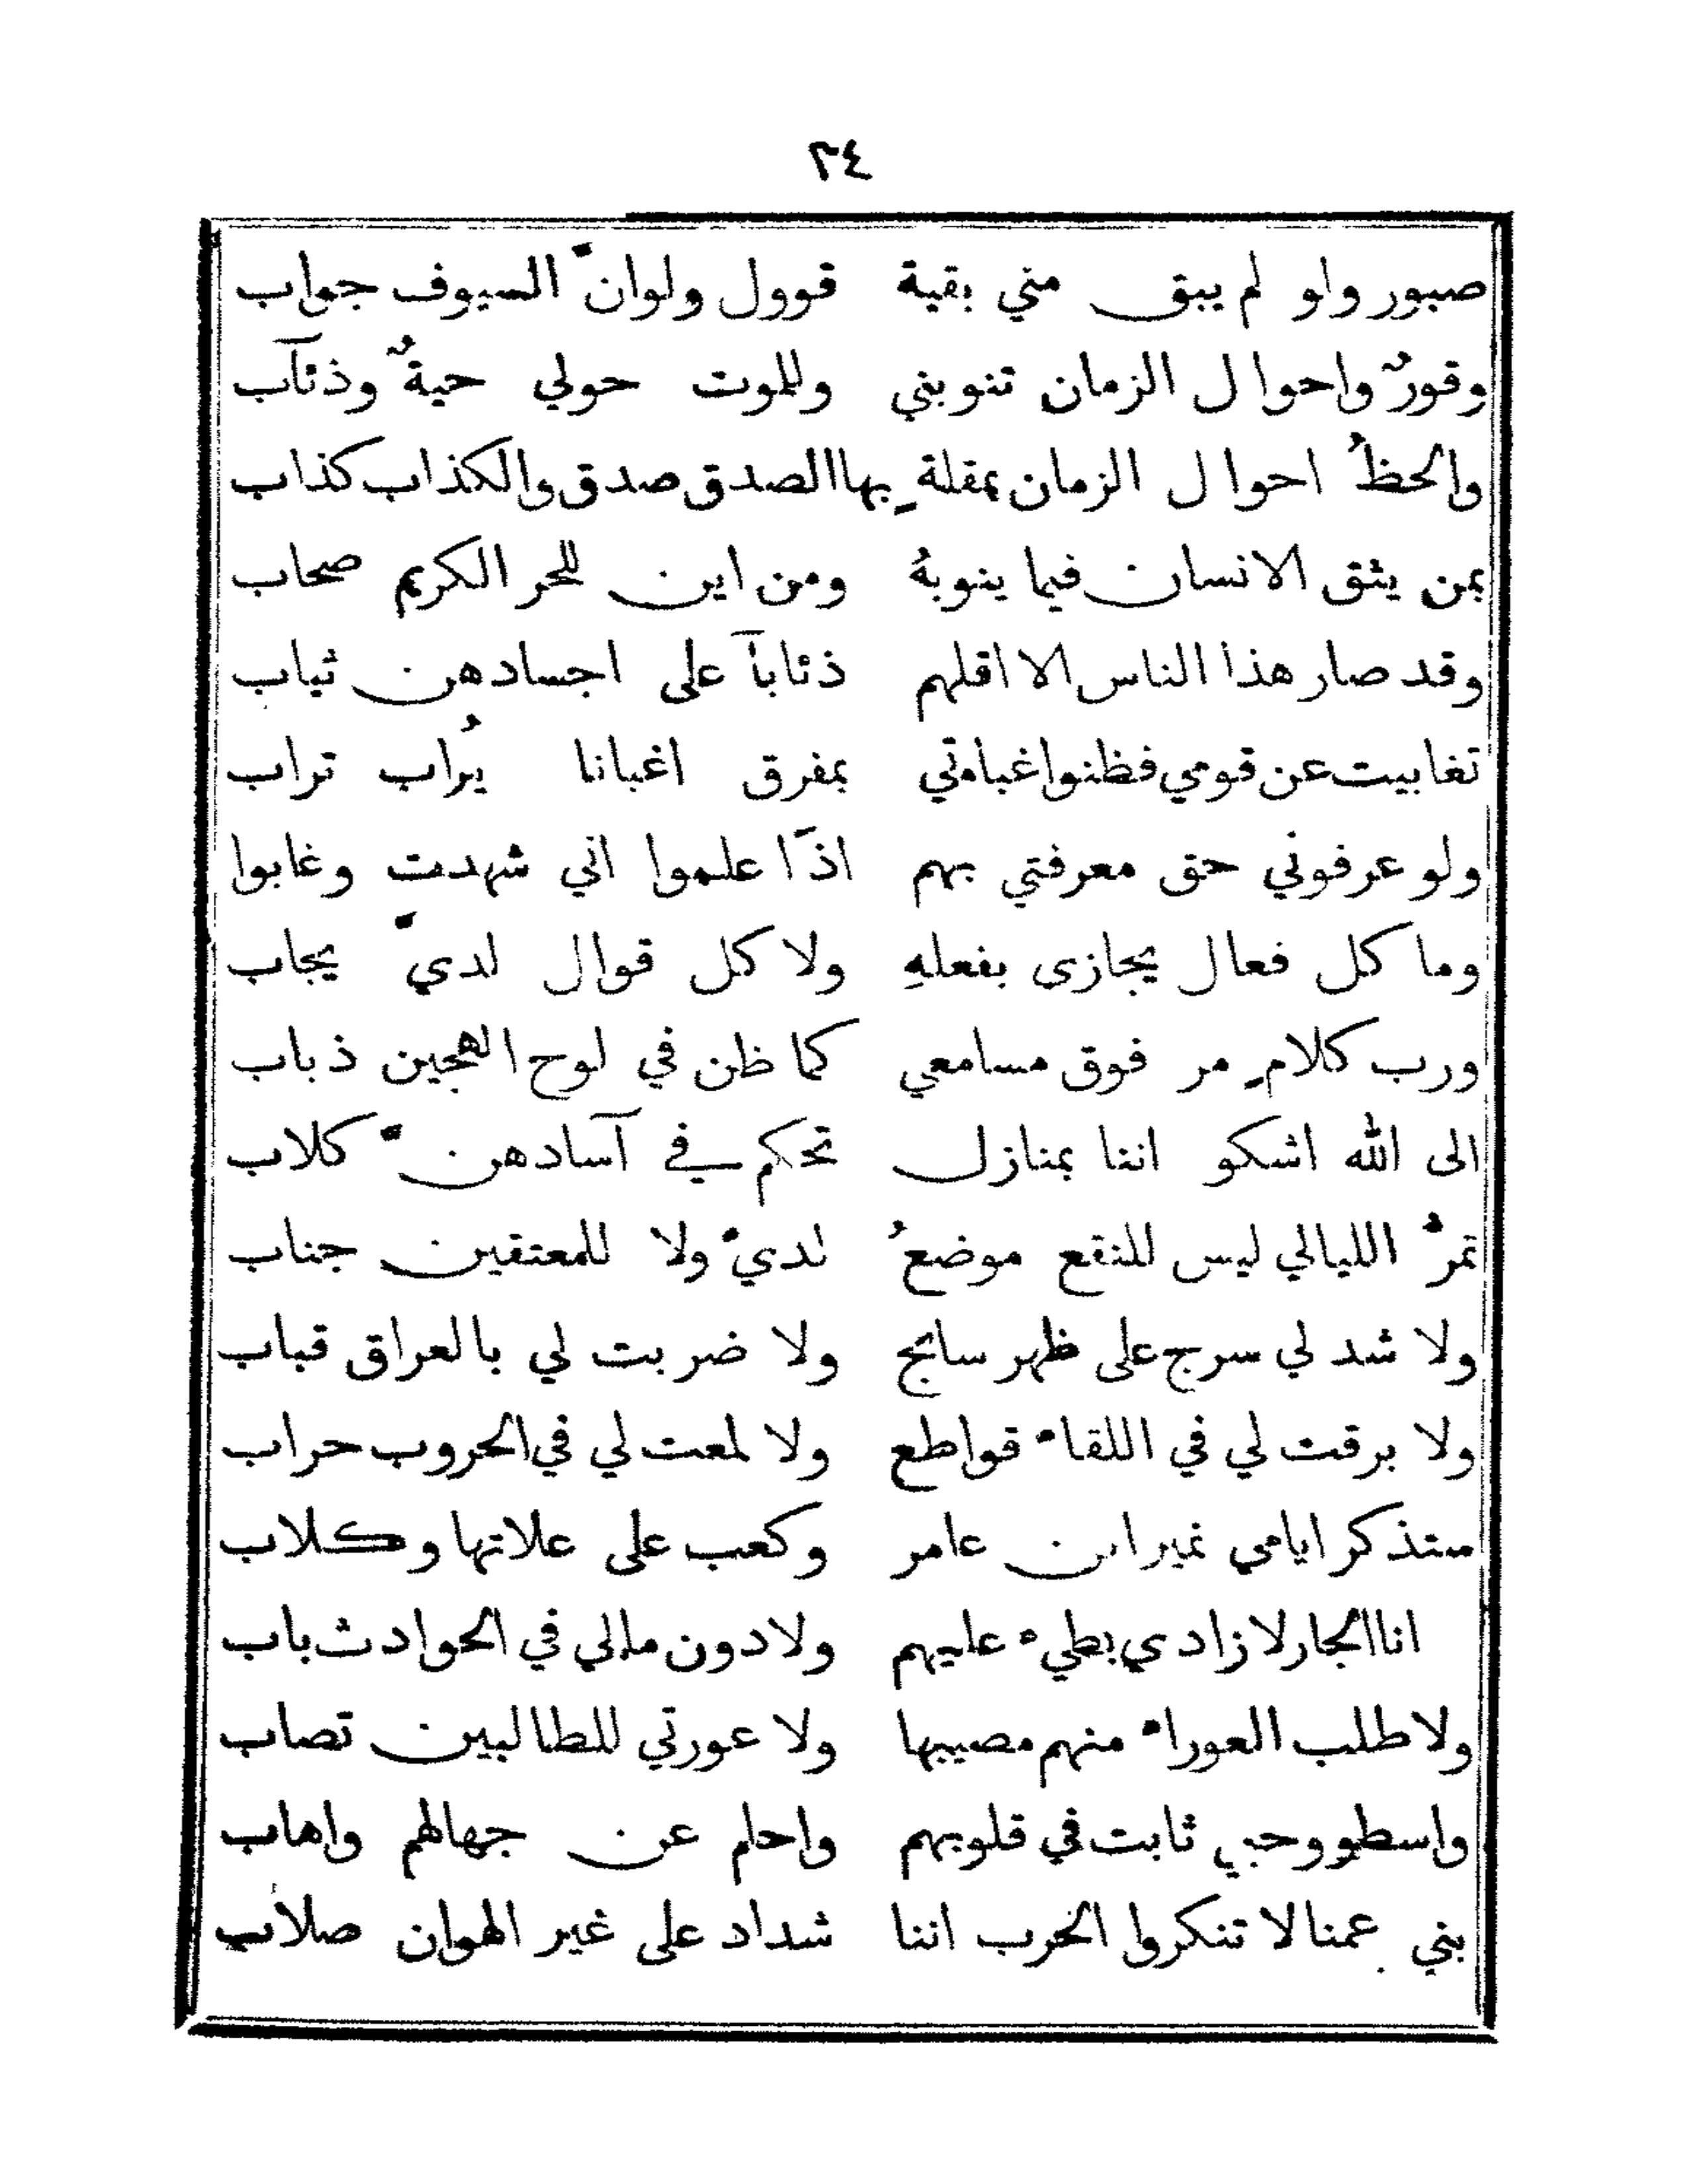 ٢٤
صبور ولو لم يبق مني بقية قوول ولوانّ السيوف جواب
وقورٌ واحوال الزمان تنوبني وللموت حولي حيةٌ وذئآب
والحظُ احوال الزمان بمقلةٍ بها الصدق صدق والكذاب كذاب
بمن يثق الانسان فيما ينوبهُ ومن اين للحر الكريم صحاب
وقد صار هذا الناس الا اقلهم ذئاباً على اجسادهن ثياب
تغابيت عن قومي فظنوا غباءتي بمفرق اغبانا يُراب تراب
ولو عرفوني حق معرفتي بهم اذًا علموا اني شهدت وغابوا
وما كل فعال يجازى بفعلهِ ولا كل قوال لديّ يجاب
ورب كلامٍ مر فوق مسامعي كما ظن في لوح الهجين ذباب
الى الله اشكو اننا بمنازل تحكم في آسادهنّ كلاب
تمرُّ الليالي ليس للنقع موضعُ لديّ ولا للمعتقين جناب
ولا شد لي سرج على ظهر سابح ولا ضربت لي بالعراق قباب
ولا برقت لي في اللقاء قواطع ولا لمعت لي في الحروب حراب
ستذكر ايامي نمير ابن عامر وكعب على علاتها وكلاب
انا الجار لا زادي بطيء عليهم ولا دون مالي في الحوادث باب
ولا طلب العوراء منهم مصيبها ولا عورتي للطالبين تصاب
واسطو وحبي ثابت في قلوبهم واحلم عن جهالهم واهاب
بني عمنا لا تنكروا الخرب اننا شداد على غير الهوان صلاب